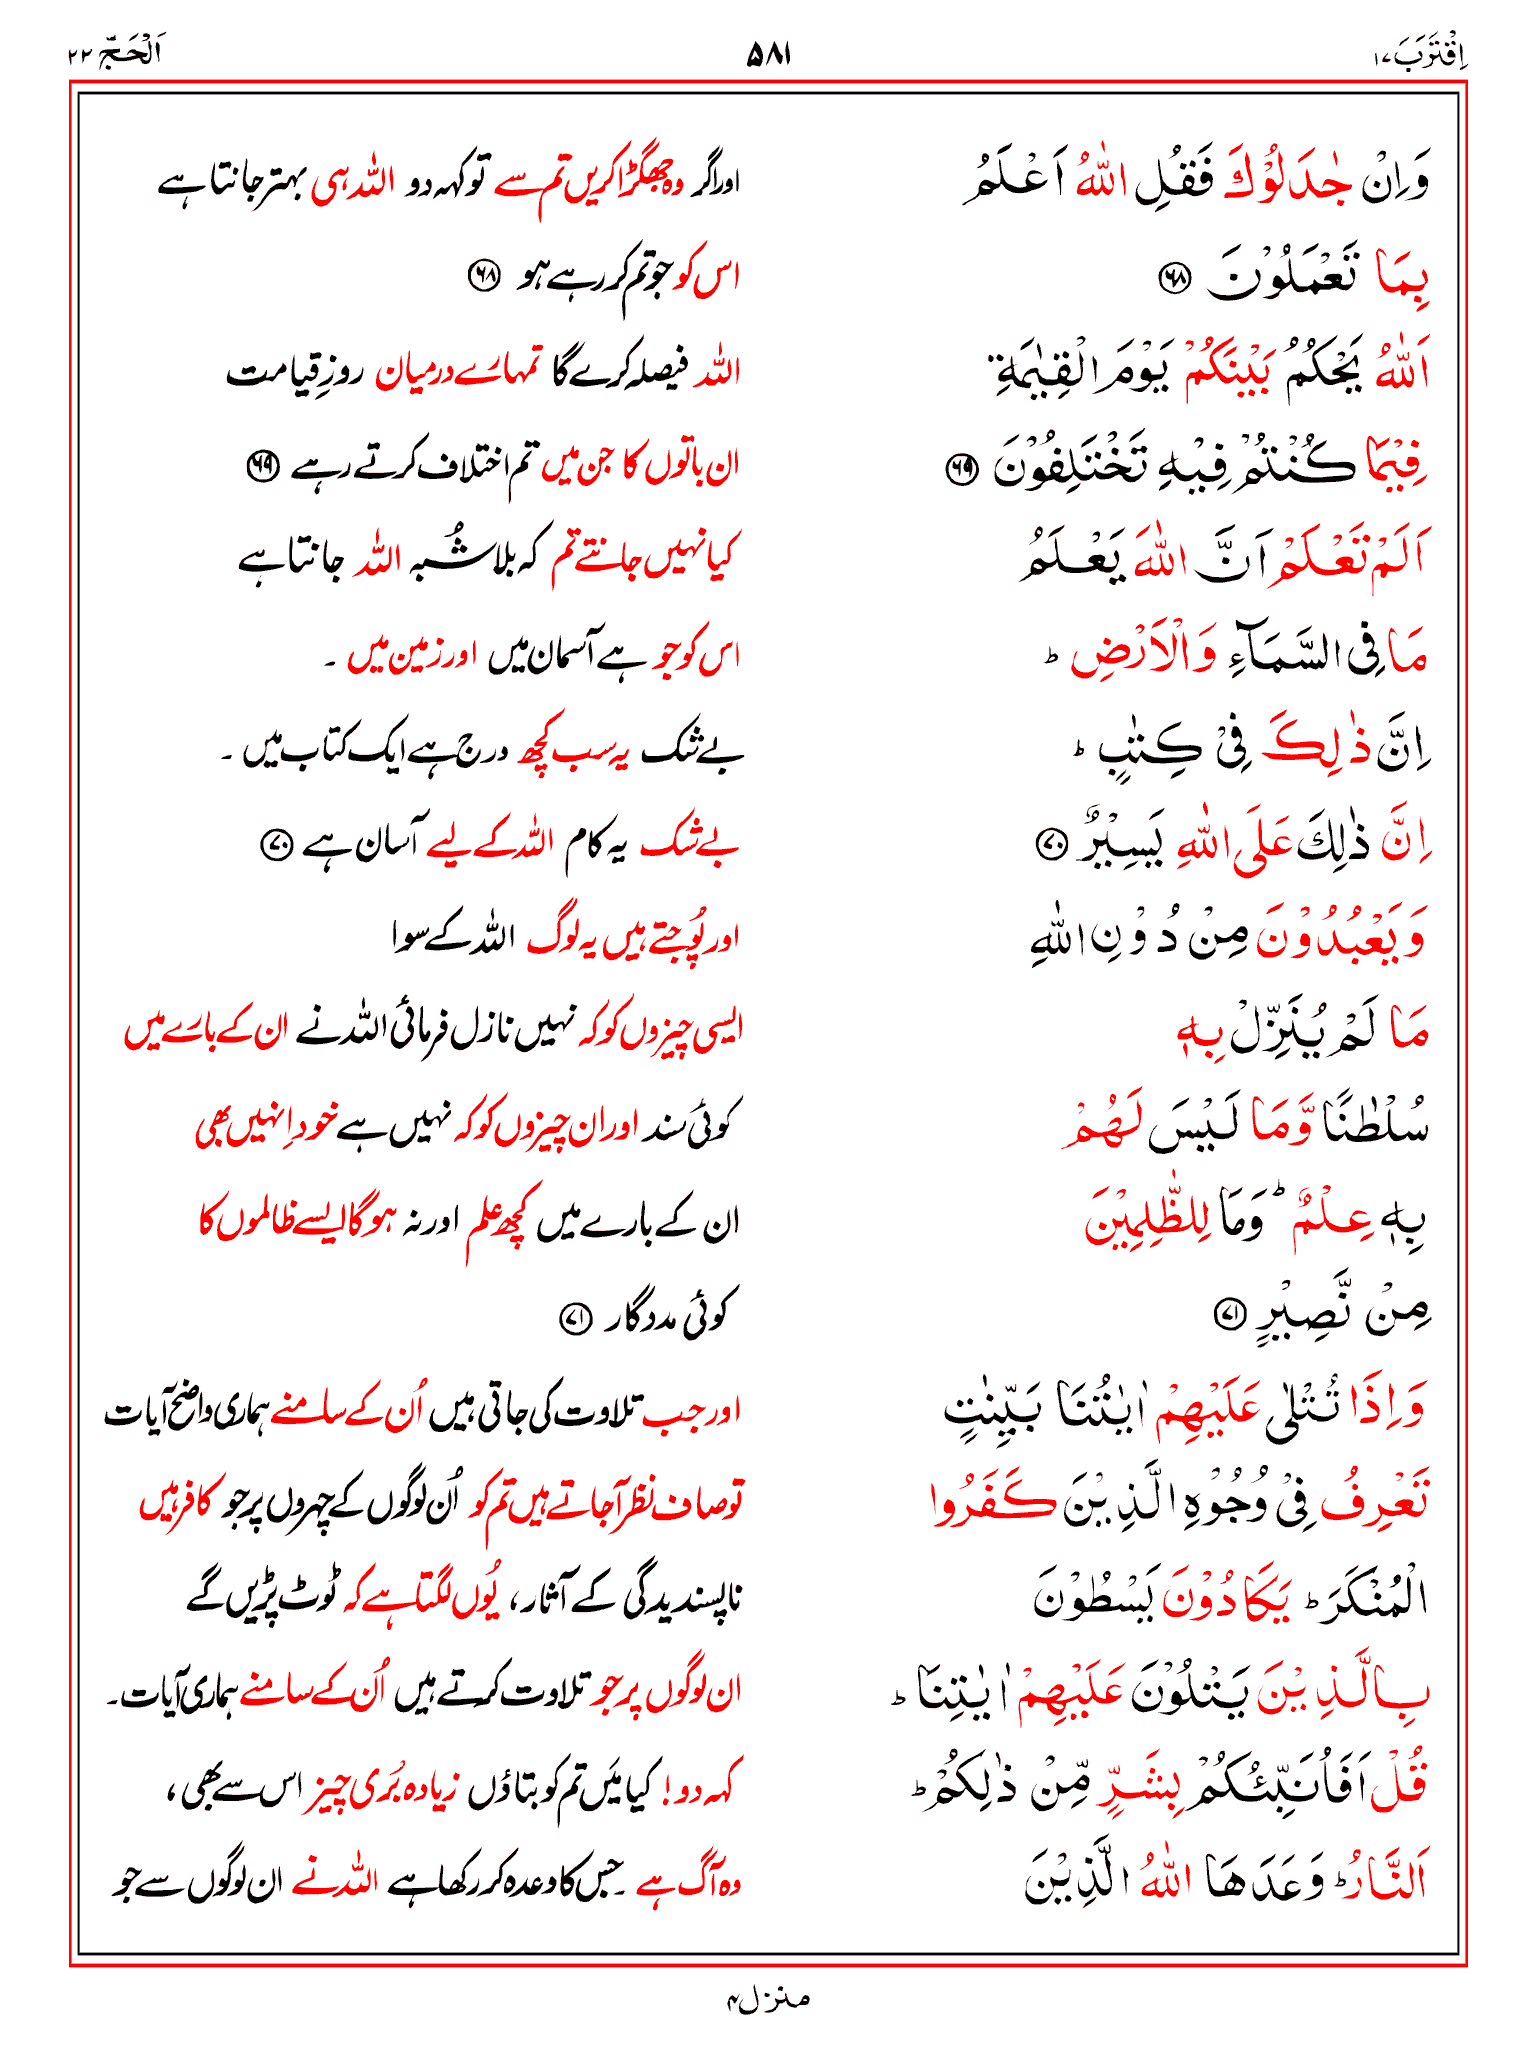 اِقْتَرَبَ ۱۷ ۵۸۱ اَلْحَجّ ۲۲
وَاِنْ جٰدَلُوْكَ فَقُلِ اللّٰهُ اَعْلَمُ اور اگر وہ جھگڑا کریں تم سے تو کہہ دو اللہ ہی بہتر جانتا ہے
بِمَا تَعْمَلُوْنَ ۶۸ اس کو جو تم کر رہے ہو ۶۸
اَللّٰهُ يَحْكُمُ بَيْنَكُمْ يَوْمَ الْقِيٰمَةِ اللہ فیصلہ کرے گا تمہارے درمیان روزِ قیامت
فِيْمَا كُنْتُمْ فِيْهِ تَخْتَلِفُوْنَ ۶۹ ان باتوں کا جن میں تم اختلاف کرتے رہے ۶۹
اَلَمْ تَعْلَمْ اَنَّ اللّٰهَ يَعْلَمُ کیا نہیں جانتے تم کہ بلا شُبہ اللہ جانتا ہے
مَا فِى السَّمَآءِ وَالْاَرْضِ ؕ اس کو جو ہے آسمان میں اور زمین میں ۔
اِنَّ ذٰلِكَ فِىْ كِتٰبٍ ؕ بے شک یہ سب کچھ درج ہے ایک کتاب میں ۔
اِنَّ ذٰلِكَ عَلَى اللّٰهِ يَسِيْرٌ ۷۰ بے شک یہ کام اللہ کے لیے آسان ہے ۷۰
وَيَعْبُدُوْنَ مِنْ دُوْنِ اللّٰهِ اور پُوجتے ہیں یہ لوگ اللہ کے سوا
مَا لَمْ يُنَزِّلْ بِهٖ ایسی چیزوں کو کہ نہیں نازل فرمائی اللہ نے ان کے بارے میں
سُلْطٰنًا وَّمَا لَيْسَ لَهُمْ کوئی سند اور ان چیزوں کو کہ نہیں ہے خود اِنہیں بھی
بِهٖ عِلْمٌ ؕ وَمَا لِلظّٰلِمِيْنَ ان کے بارے میں کچھ علم اور نہ ہوگا ایسے ظالموں کا
مِنْ نَّصِيْرٍ ۷۱ کوئی مددگار ۷۱
وَاِذَا تُتْلٰى عَلَيْهِمْ اٰيٰتُنَا بَيِّنٰتٍ اور جب تلاوت کی جاتی ہیں اُن کے سامنے ہماری واضح آیات
تَعْرِفُ فِىْ وُجُوْهِ الَّذِيْنَ كَفَرُوا تو صاف نظر آجاتے ہیں تم کو اُن لوگوں کے چہروں پر جو کافر ہیں
الْمُنْكَرَ ؕ يَكَادُوْنَ يَسْطُوْنَ ناپسندیدگی کے آثار، یُوں لگتا ہے کہ ٹوٹ پڑیں گے
بِالَّذِيْنَ يَتْلُوْنَ عَلَيْهِمْ اٰيٰتِنَا ؕ ان لوگوں پر جو تلاوت کرتے ہیں اُن کے سامنے ہماری آیات۔
قُلْ اَفَاُنَبِّئُكُمْ بِشَرٍّ مِّنْ ذٰلِكُمْ ؕ کہہ دو! کیا مَیں تم کو بتاؤں زیادہ بُری چیز اس سے بھی،
اَلنَّارُ ؕ وَعَدَهَا اللّٰهُ الَّذِيْنَ وہ آگ ہے ۔ جس کا وعدہ کر رکھا ہے اللہ نے ان لوگوں سے جو
منزل ۴